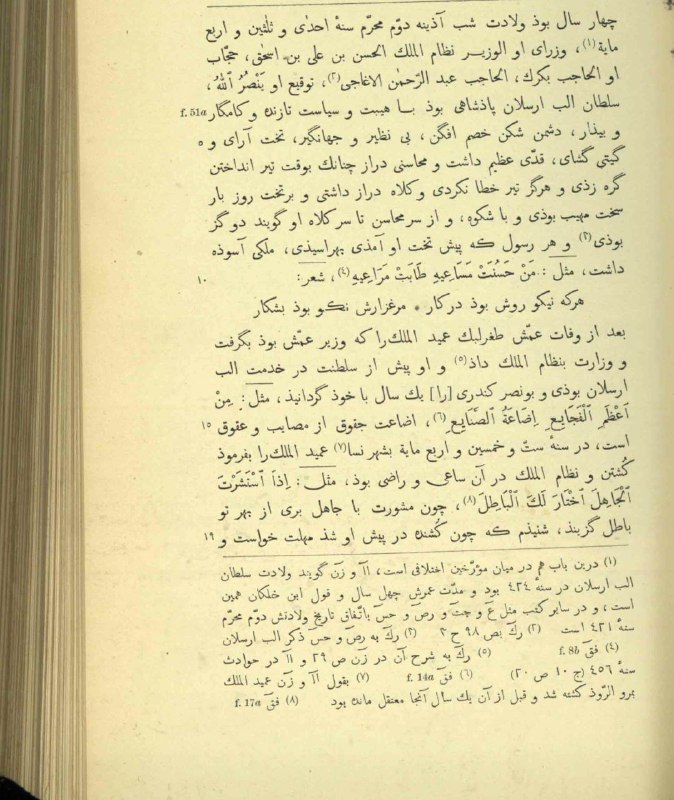 چهار سال بوذ ولادت شب آذینه دوّم محرّم سنهٔ احدی و ثلثین و اربع
مایة(۱)، وزرای او الوزیر نظام الملك الحسن بن علی بن اسحٰق، حجّاب
او الحاجب بكرك، الحاجب عبد الرّحمٰن الاغاجی(۲)، توقیع او یَنْصُرُ ٱللهُ،
سلطان الب ارسلان پاذشاهی بوذ با هیبت و سیاست تازنده و کامگار f. 51a
و بیذار، دشمن شکن خصم افگن، بی نظیر و جهانگیر، تخت آرای و ٥
گیتی گشای، قدّی عظیم داشت و محاسنی دراز چنانك بوقت تیر انداختن
گره زذی و هرگز تیر خطا نکردی و کلاه دراز داشتی و برتخت روز بار
سخت مهیب بوذی و با شکوه، و از سر محاسن تا سر کلاه او گویند دو گز
بوذی(۳) و هر رسول که پیش تخت او آمذی بهراسیذی، ملکی آسوذه
داشت، مثل: مَنْ حَسُنَتْ مَسَاعِیهِ طَابَتْ مَرَاعِیهِ(٤)، شعر: ۱۰
هرکه نیکو روش بوذ درکار * مرغزارش نکو بوذ بشکار
بعد از وفات عمّش طغرلبك عمید الملك را که وزیر عمّش بوذ بگرفت
و وزارت بنظام الملك داذ(٥) و او پیش از سلطنت در خدمت الب
ارسلان بوذی و بونصر کندری [را] یك سال با خوذ گردانیذ، مثل: مِنْ
اَعْظَمِ ٱلْفَجَایِعِ اِضَاعَةُ ٱلصَّنَایِعِ(٦)، اضاعت حقوق از مصایب و عقوق ۱٥
است، در سنهٔ ستّ و خمسین و اربع مایة بشهر نسا(۷) عمید الملك را بفرموذ
کُشتن و نظام الملك در آن ساعی و راضی بوذ، مثل: اِذَا ٱسْتَشَرْتَ
ٱلْجَاهِلَ ٱخْتَارَ لَكَ ٱلْبَاطِلَ(۸)، چون مشورت با جاهل بری از بهر تو
باطل گزیند، شنیذم که چون کُشنده در پیش او شذ مهلت خواست و ۱۹
(۱) درین باب هم در میان مؤرّخین اختلافی است، آآ و زن گویند ولادت سلطان
الب ارسلان در سنهٔ ٤۲٤ بود و مدّت عمرش چهل سال و قول ابن خلکان همین
است، و در سایر کتب مثل ع و جت و رص و حس باتّفاق تاریخ ولادتش دوّم محرّم
سنهٔ ٤۲۱ است (۲) رك بص ۹۸ ح ۲ (۳) رك به رص و حس ذکر الب ارسلان
(٤) فق f. 8b (٥) رك به شرح آن در زن ص ۲۹ و آآ در حوادث
سنهٔ ٤٥٦ (ج ۱۰ ص ۲۰) (٦) فق f. 14a (۷) بقول آآ و زن عمید الملك
بمرو الرّوذ کشته شد و قبل از آن یك سال آنجا معتقل مانده بود (۸) فق f. 17a